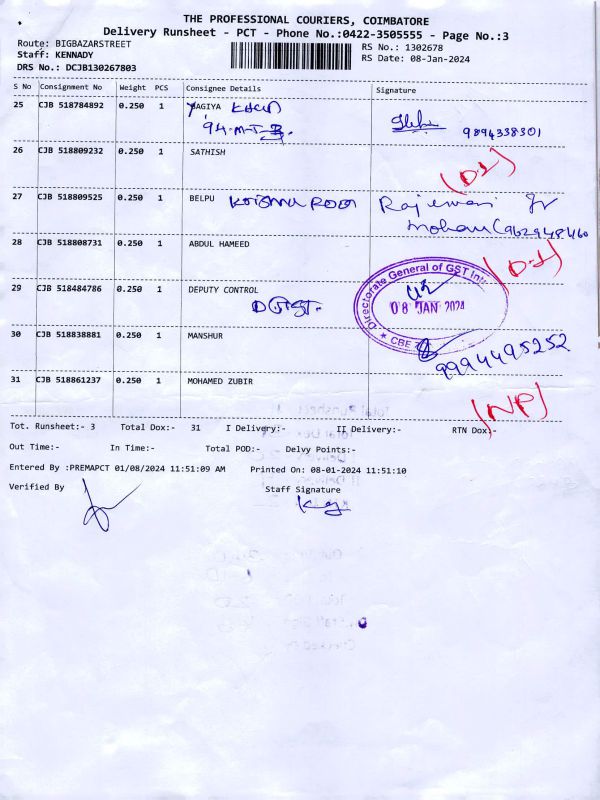 THE PROFESSIONAL COURIERS, COIMBATORE
Delivery Runsheet - PCT - Phone No.:0422-3505555 - Page No.:3
Route: BIGBAZARSTREET
Staff: KENNADY
DRS No.: DCJB130267803
RS No.: 1302678
RS Date: 08-Jan-2024
S No Consignment No Weight PCS Consignee Details Signature
25 CJB 518784892 0.250 1 YAGIYA
9894338301
26 CJB 518809232 0.250 1 SATHISH
27 CJB 518809525 0.250 1 BELPU
28 CJB 518808731 0.250 1 ABDUL HAMEED
29 CJB 518484786 0.250 1 DEPUTY CONTROL
Directorate General of GST
08 JAN 2024
30 CJB 518838881 0.250 1 MANSHUR
9994495252
31 CJB 518861237 0.250 1 MOHAMED ZUBIR
(NP)
Tot. Runsheet:- 3 Total Dox:- 31 I Delivery:- II Delivery:- RTN Dox:-
Out Time:- In Time:- Total POD:- Delvy Points:-
Entered By :PREMAPCT 01/08/2024 11:51:09 AM Printed On: 08-01-2024 11:51:10
Verified By Staff Signature